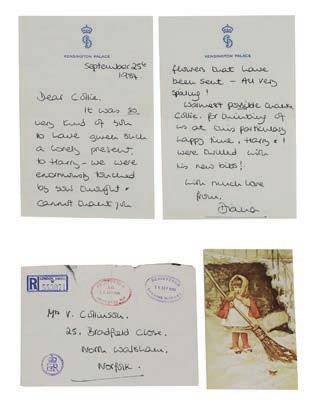 KENSINGTON PALACE
September 25th
1984.
Dear Collie.
It was so
very kind of you
to have given such
a lovely present,
to Harry - we were
enormously touched
by your thought &
cannot thank you
KENSINGTON PALACE
flowers that have
been sent - All very
spoiling!
Warmest possible thanks
Collie, for thinking of
us at this particularly
happy time. Harry & I
were thrilled with
his new bits!
with much love
from,
Diana
R
REGISTERED
REGISTERED
Mrs V. Collinson.
25, Bradfield Close.
North Walsham,
Norfolk.